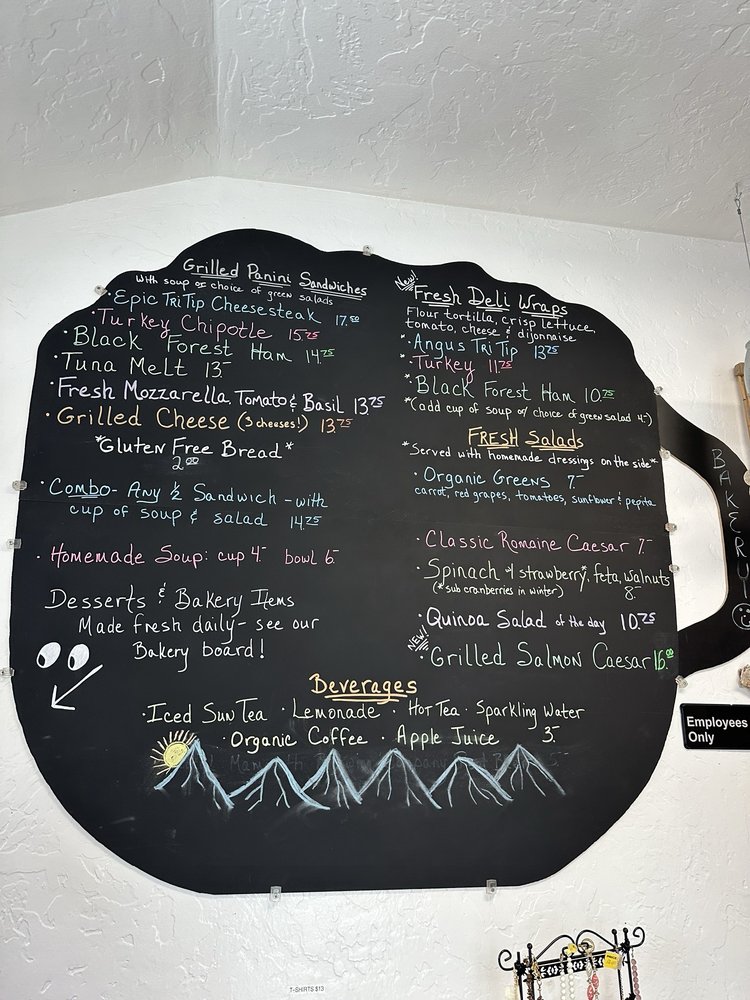 Grilled Panini Sandwiches
with soup or choice of green salads
· Epic Tri Tip Cheesesteak 17.00
· Turkey Chipotle 15.25
· Black Forest Ham 14.75
· Tuna Melt 13-
· Fresh Mozzarella, Tomato & Basil 13.75
· Grilled Cheese (3 cheeses!) 13.75
*Gluten Free Bread*
2.00
· Combo- Any ½ Sandwich - with
cup of soup & salad 14.75
· Homemade Soup: cup 4- bowl 6-
Desserts & Bakery Items
Made fresh daily- see our
Bakery board!
New!
Fresh Deli Wraps
Flour tortilla, crisp lettuce,
tomato, cheese & dijonnaise
*· Angus Tri Tip 13.25
*· Turkey 11.75
*· Black Forest Ham 10.75
*(add cup of soup or choice of green salad 4-)
FRESH Salads
*Served with homemade dressings on the side*
· Organic Greens 7-
carrot, red grapes, tomatoes, sunflower & pepita
· Classic Romaine Caesar 7-
· Spinach w/ strawberry*, feta, walnuts
(*sub cranberries in winter) 8-
· Quinoa Salad of the day 10.75
NEW!
· Grilled Salmon Caesar 16.00
Beverages
· Iced Sun Tea · Lemonade · Hot Tea · Sparkling Water
· Organic Coffee · Apple Juice 3-
BAKERY
Employees
Only
T-SHIRTS $13